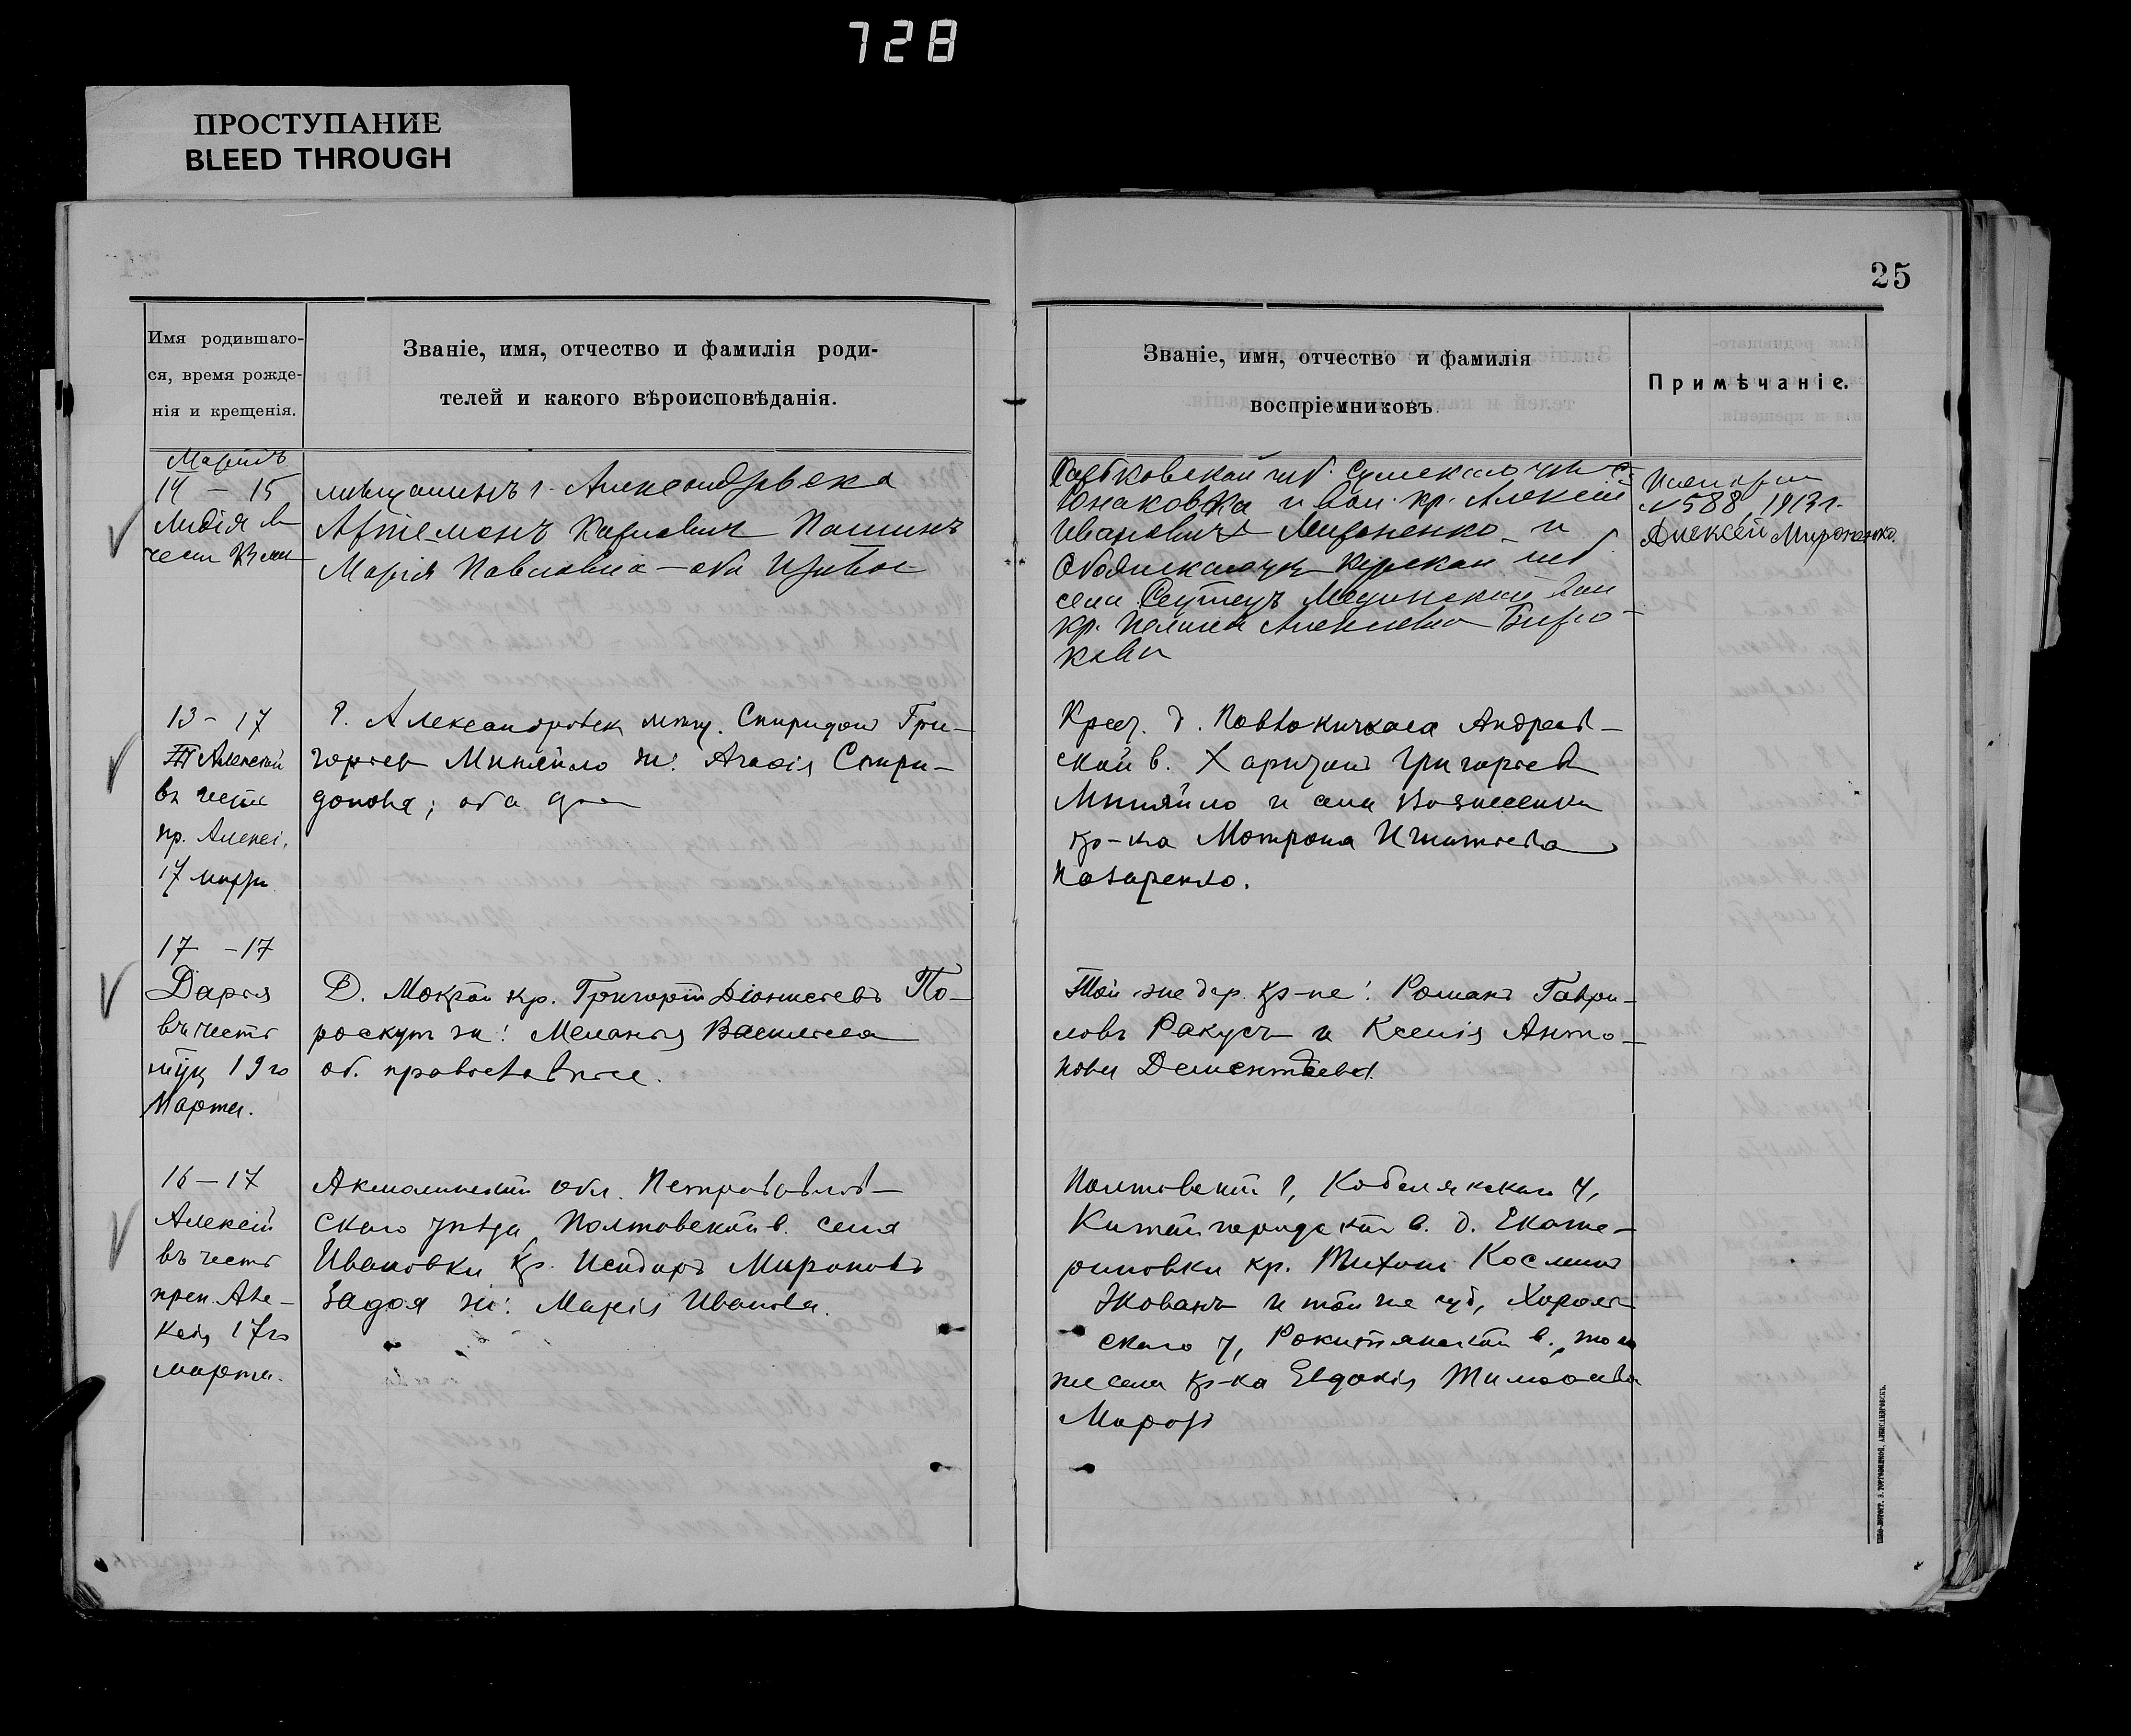 728
ПРОСТУПАНИЕ
BLEED THROUGH
25
Имя родившаго-
ся, время рожде-
нія и крещенія.
Званіе, имя, отчество и фамилія роди-
телей и какого вѣроисповѣданія.
Званіе, имя, отчество и фамилія
воспріемниковъ.
Примѣчаніе.
Мартъ
14 – 15
Лидія въ
чест 23 мар
мѣщанинъ г. Александровска
Артемонъ Карловичъ Пашинъ
Марія Павловна – оба
Харьковской губ. Сумскаго уѣз с.
Юнаковка и вол. кр. Алексій
Ивановичъ Мироненко и
Обоянскаго уѣз Курской губ
села вол
кр. Алексѣевна Бирю-
кова
№ 588 1913 г.
Алексѣй Мироненко.
13 – 17
Алексій
въ честь
пр. Алексі.
17 марта
г. Александровск мѣщ. Спиридонъ Гри-
горьев ж. Агафія Спири-
донова; оба
Крест. д. Павлокичкаса Андреев-
ской в. Харитонъ Григорьев
и села Вознесенки
кр-ка Мотрона Игнатьева
Назаренко.
17 – 17
Дарья
въ честь
муц 19го
Марта.
Д. Мокрой кр. Григорій Діонисіевъ По-
роскун ж: Меланья Васильева
об. православные.
Той же дер. кр-не: Романъ Гаври-
ловъ Ракуса и Ксенія Анто-
нова Дементьева.
16 – 17
Алексій
въ честь
преп. Але-
ксія 17го
марта.
Акмолинской обл. Петропавлов-
скаго уѣзда Полтовской в. села
Ивановки кр. Исидоръ Мироновъ
Задоя ж: Марія Иванова.
Полтавской г, Кобелякскаго у,
Китайгородской в. д. Екате-
риновки кр. Тихонъ Космин
Жованъ и той же губ, Хороль-
скаго у, Рокитянской в. того
же села кр-ка Евдокія Тимофеева
Мороз